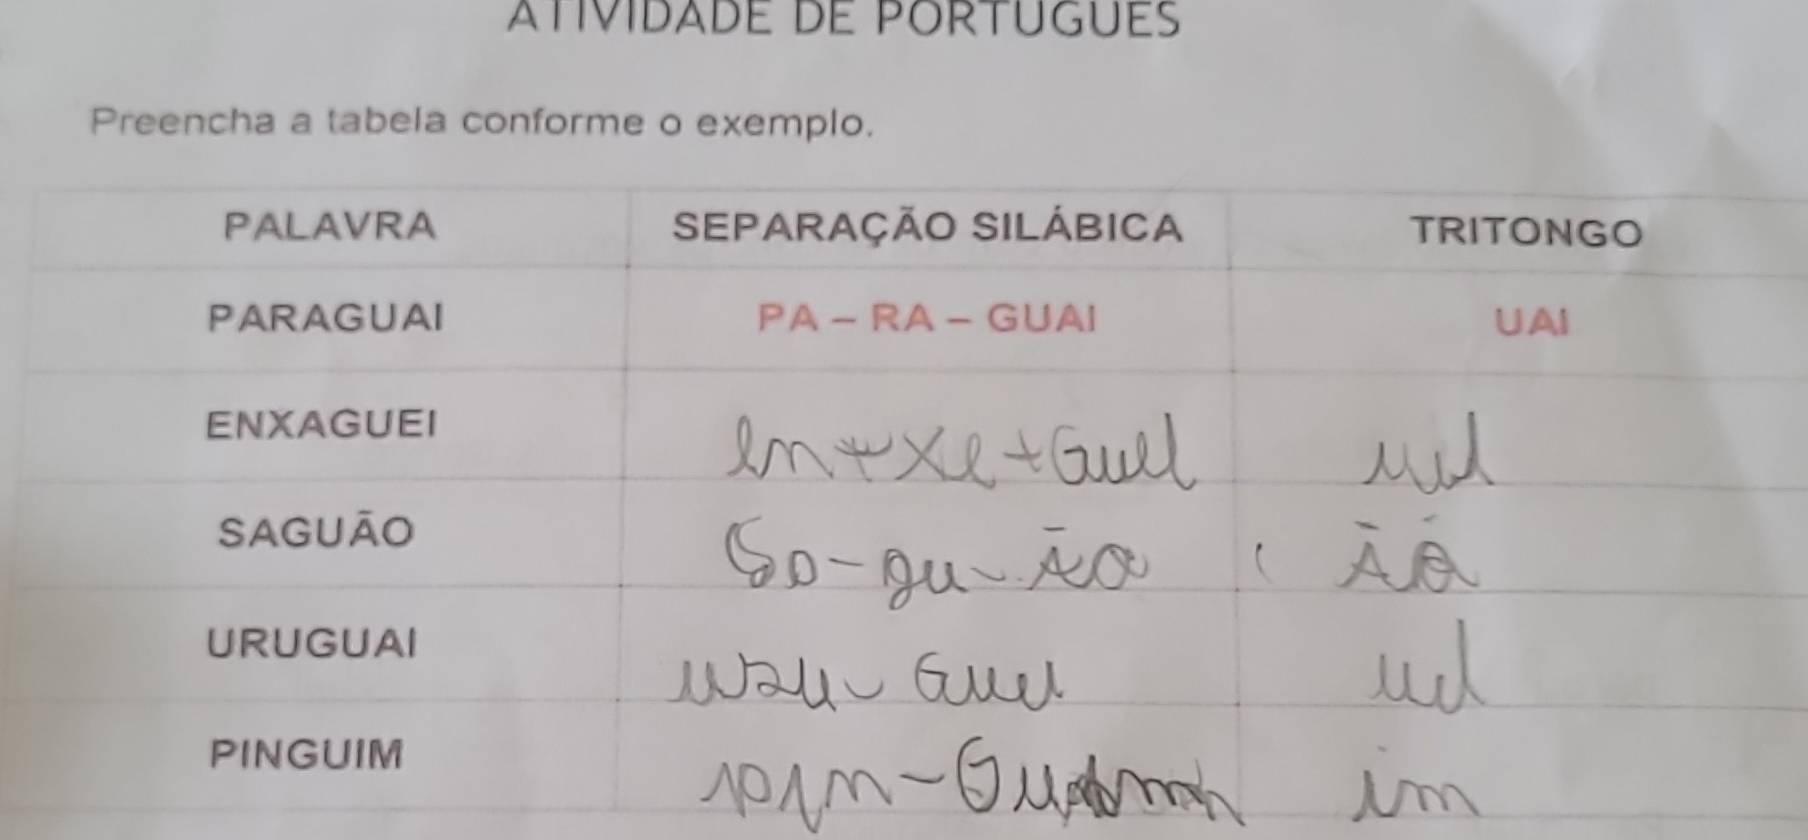 ATIVIDADE DE PORTUGUÊS
Preencha a tabela conforme o exemplo.
PALAVRA SEPARAÇÃO SILÁBICA TRITONGO
PARAGUAI PA – RA – GUAI UAI
ENXAGUEI en+xe+Guel
SAGUÃO So-gu-ão
URUGUAI
PINGUIM im